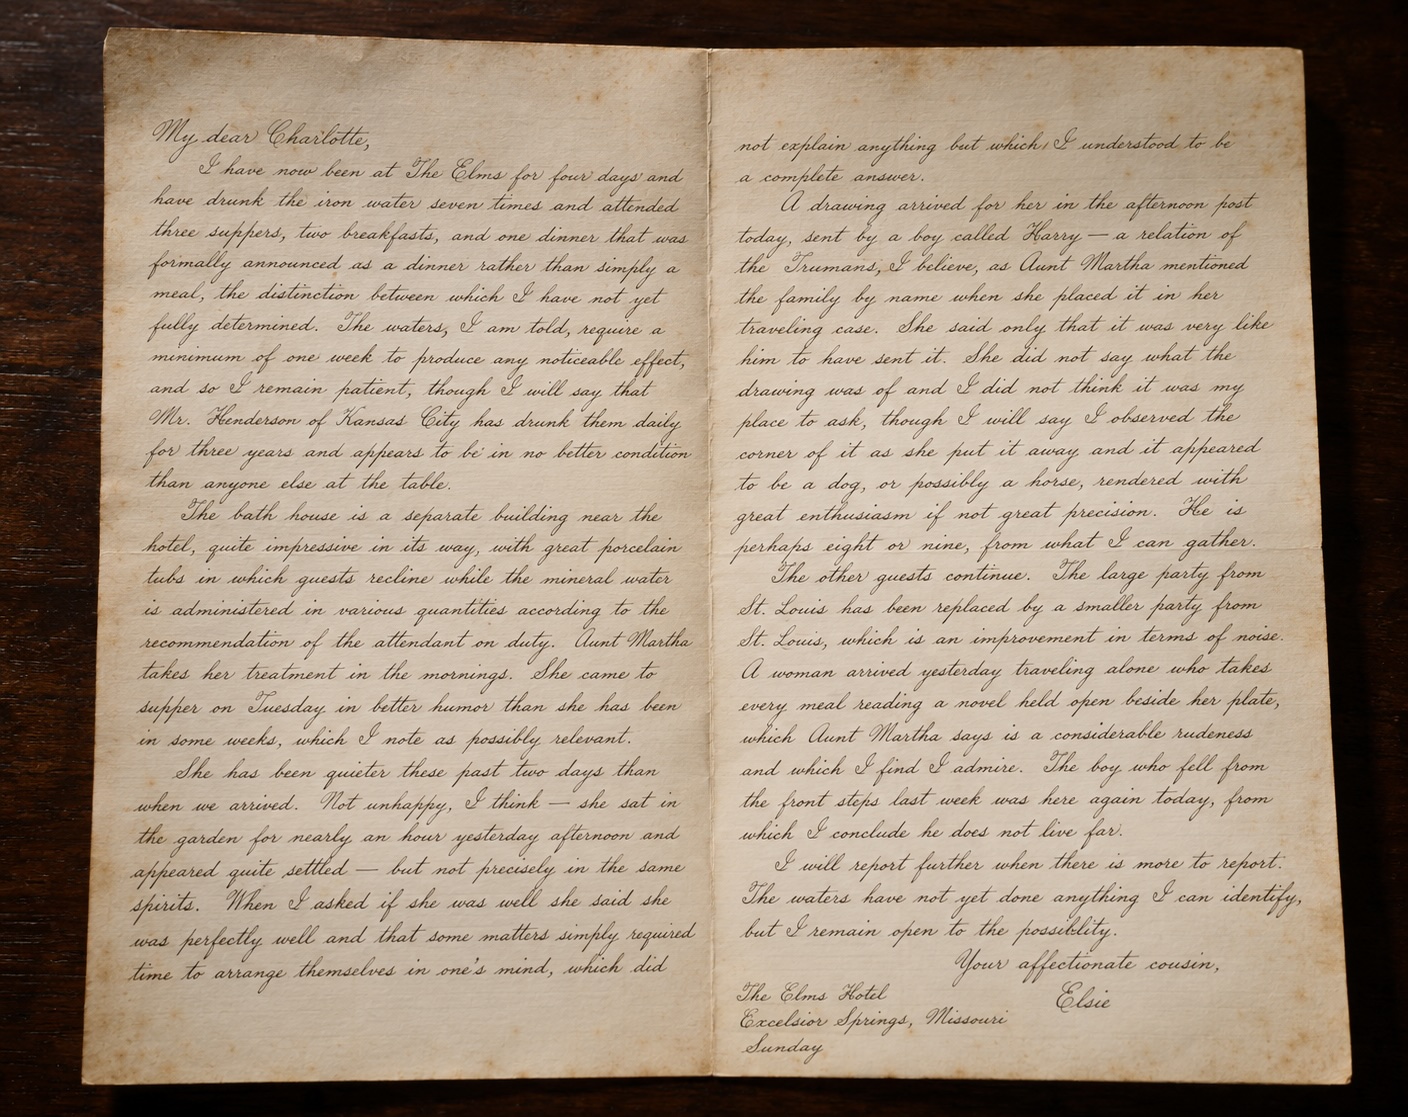 My dear Charlotte,
I have now been at The Elms for four days and
have drunk the iron water seven times and attended
three suppers, two breakfasts, and one dinner that was
formally announced as a dinner rather than simply a
meal, the distinction between which I have not yet
fully determined. The waters, I am told, require a
minimum of one week to produce any noticeable effect,
and so I remain patient, though I will say that
Mr. Henderson of Kansas City has drunk them daily
for three years and appears to be in no better condition
than anyone else at the table.
The bath house is a separate building near the
hotel, quite impressive in its way, with great porcelain
tubs in which guests recline while the mineral water
is administered in various quantities according to the
recommendation of the attendant on duty. Aunt Martha
takes her treatment in the mornings. She came to
supper on Tuesday in better humor than she has been
in some weeks, which I note as possibly relevant.
She has been quieter these past two days than
when we arrived. Not unhappy, I think — she sat in
the garden for nearly an hour yesterday afternoon and
appeared quite settled — but not precisely in the same
spirits. When I asked if she was well she said she
was perfectly well and that some matters simply required
time to arrange themselves in one's mind, which did
not explain anything but which I understood to be
a complete answer.
A drawing arrived for her in the afternoon post
today, sent by a boy called Harry — a relation of
the Trumans, I believe, as Aunt Martha mentioned
the family by name when she placed it in her
traveling case. She said only that it was very like
him to have sent it. She did not say what the
drawing was of and I did not think it was my
place to ask, though I will say I observed the
corner of it as she put it away and it appeared
to be a dog, or possibly a horse, rendered with
great enthusiasm if not great precision. He is
perhaps eight or nine, from what I can gather.
The other guests continue. The large party from
St. Louis has been replaced by a smaller party from
St. Louis, which is an improvement in terms of noise.
A woman arrived yesterday traveling alone who takes
every meal reading a novel held open beside her plate,
which Aunt Martha says is a considerable rudeness
and which I find I admire. The boy who fell from
the front steps last week was here again today, from
which I conclude he does not live far.
I will report further when there is more to report.
The waters have not yet done anything I can identify,
but I remain open to the possiblity.
Your affectionate cousin,
Elsie
The Elms Hotel
Excelsior Springs, Missouri
Sunday